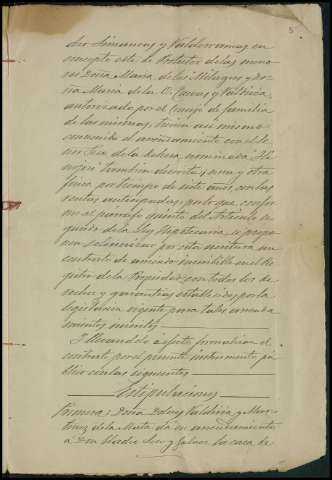 dro Simancas y Valderramas en
concepto este de Protutor de las meno-
res Doña Maria de los Milagros y Do-
ña Maria de la O. y Valdivia,
autorizado por el consejo de familia
de las mismas, tienen asi mismo
convenido el arrendamiento con el Se-
ñor de la dehesa nominada
tambien descrita, una y otra
finca por tiempo de siete años, con las
rentas anticipadas; por lo que, confor-
me al parrafo quinto del Articulo se-
gundo de la Ley Hipotecaria, se propo-
nen solemnizar por esta escritura un
contrato de arriendo inscribible en el Re-
gistro de la Propiedad con todos los de-
rechos y garantias establecidas por la
legislacion vigente para tales arrenda-
mientos inscritos
Y llevandolo á efecto formalizan el
contrato por el presente instrumento pú-
blico con las siguientes
Estipulaciones
Primera: Doña Dolores Valdivia y Mar-
de la Mata dá en arrendamiento
á Don y la casa de